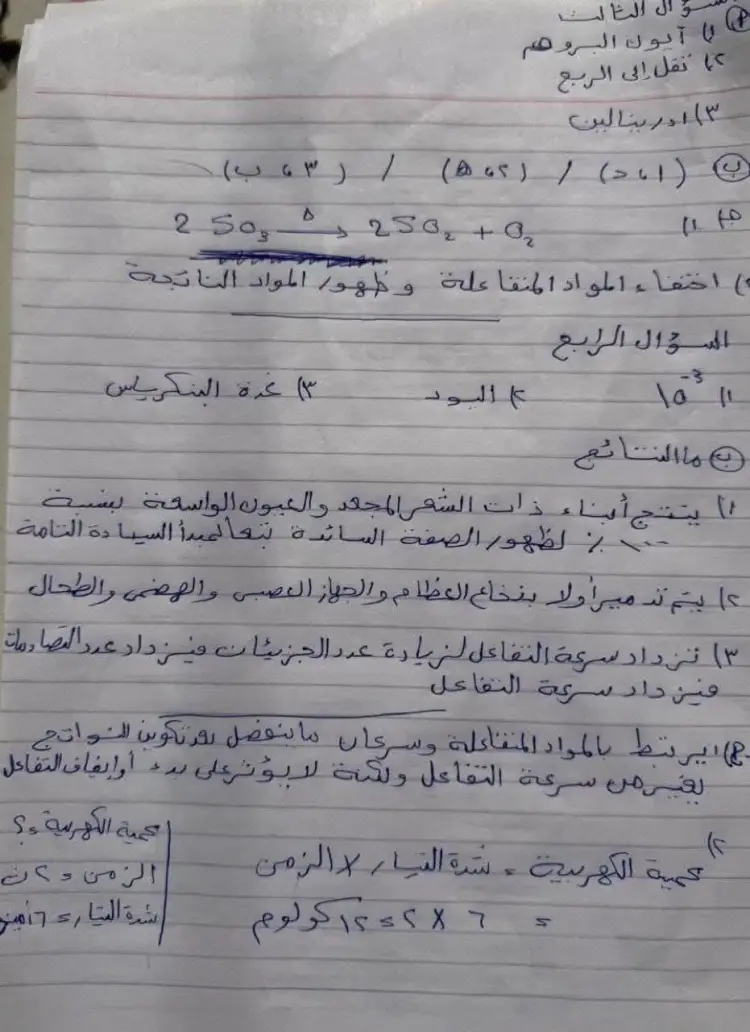 سؤال الثالث
(P) ١) أيون البروهم
٢) تقل إلى الربع
٣) ادرينالين
(ب) (١ ، د) / (٢ ، ) / (٣ ، ب)
ج) ١) 2 SO3 —Δ→ 2SO2 + O2
٢) اختفاء المواد المتفاعلة وظهور المواد الناتجة
السؤال الرابع
١) 10⁻³ ٢) اليود ٣) غدة البنكرياس
(ب) ما النتائج
١) ينتج أبناء ذات الشعر المجعد والعيون الواسعة بنسبة
١٠٠٪ لظهور الصفة السائدة تبعا لمبدأ السيادة التامة
٢) يتم تدمير أولا بنخاع العظام والجهاز العصبى والهضمى والطحال
٣) تزداد سرعة التفاعل لزيادة عدد الجزيئات فيزداد عدد التصادمات
فيزداد سرعة التفاعل
ج) ١) يرتبط بالمواد المتفاعلة وسرعان ما ينفصل تكوين النواتج
يغير من سرعة التفاعل ولكنة لا يؤثر على بدء أو إيقاف التفاعل
٢) كمية الكهربية = شدة التيار X الزمن
= ٦ X ٢ = ١٢ كولوم
كمية الكهربية = ؟
الزمن = ٢ ث
شدة التيار = ٦ أمبير